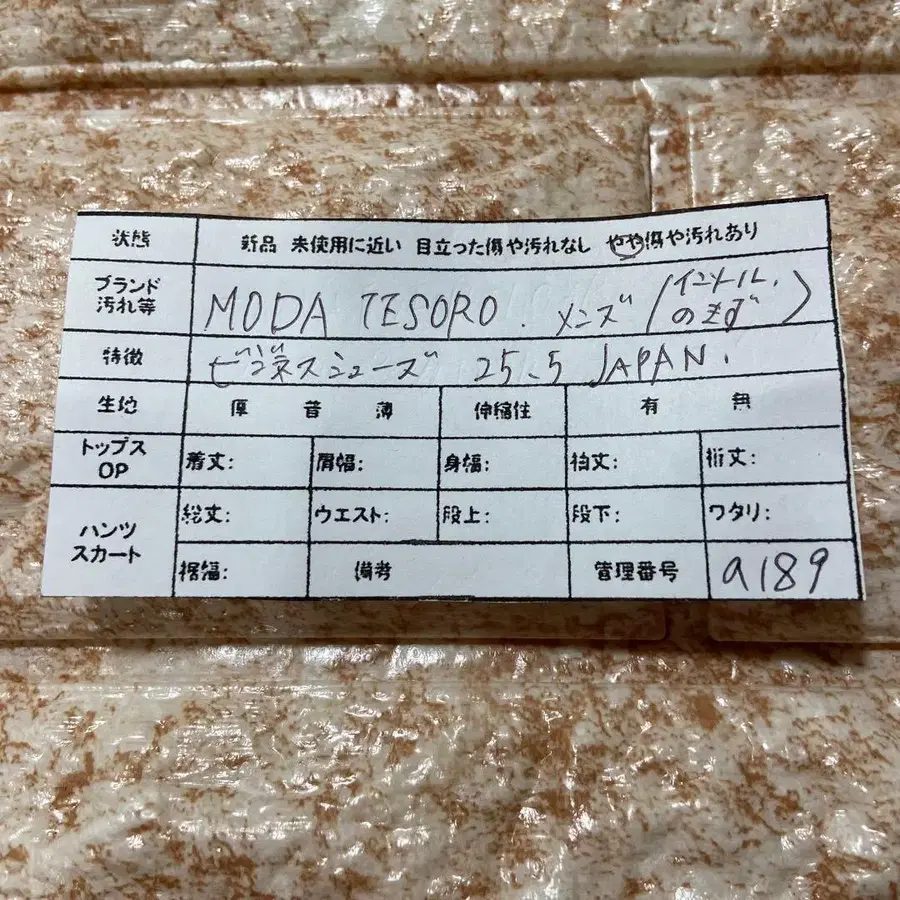 状態 新品 未使用に近い 目立った傷や汚れなし やや傷や汚れあり
ブランド
汚れ等 MODA TESORO. メンズ (インソール、
のきず)
特徴 ビジネスシューズ 25.5 JAPAN.
生地 厚 普 薄 伸縮性 有 無
トップス
OP 着丈: 肩幅: 身幅: 袖丈: 裄丈:
パンツ
スカート 総丈: ウエスト: 股上: 股下: ワタリ:
裾幅: 備考 管理番号 a189